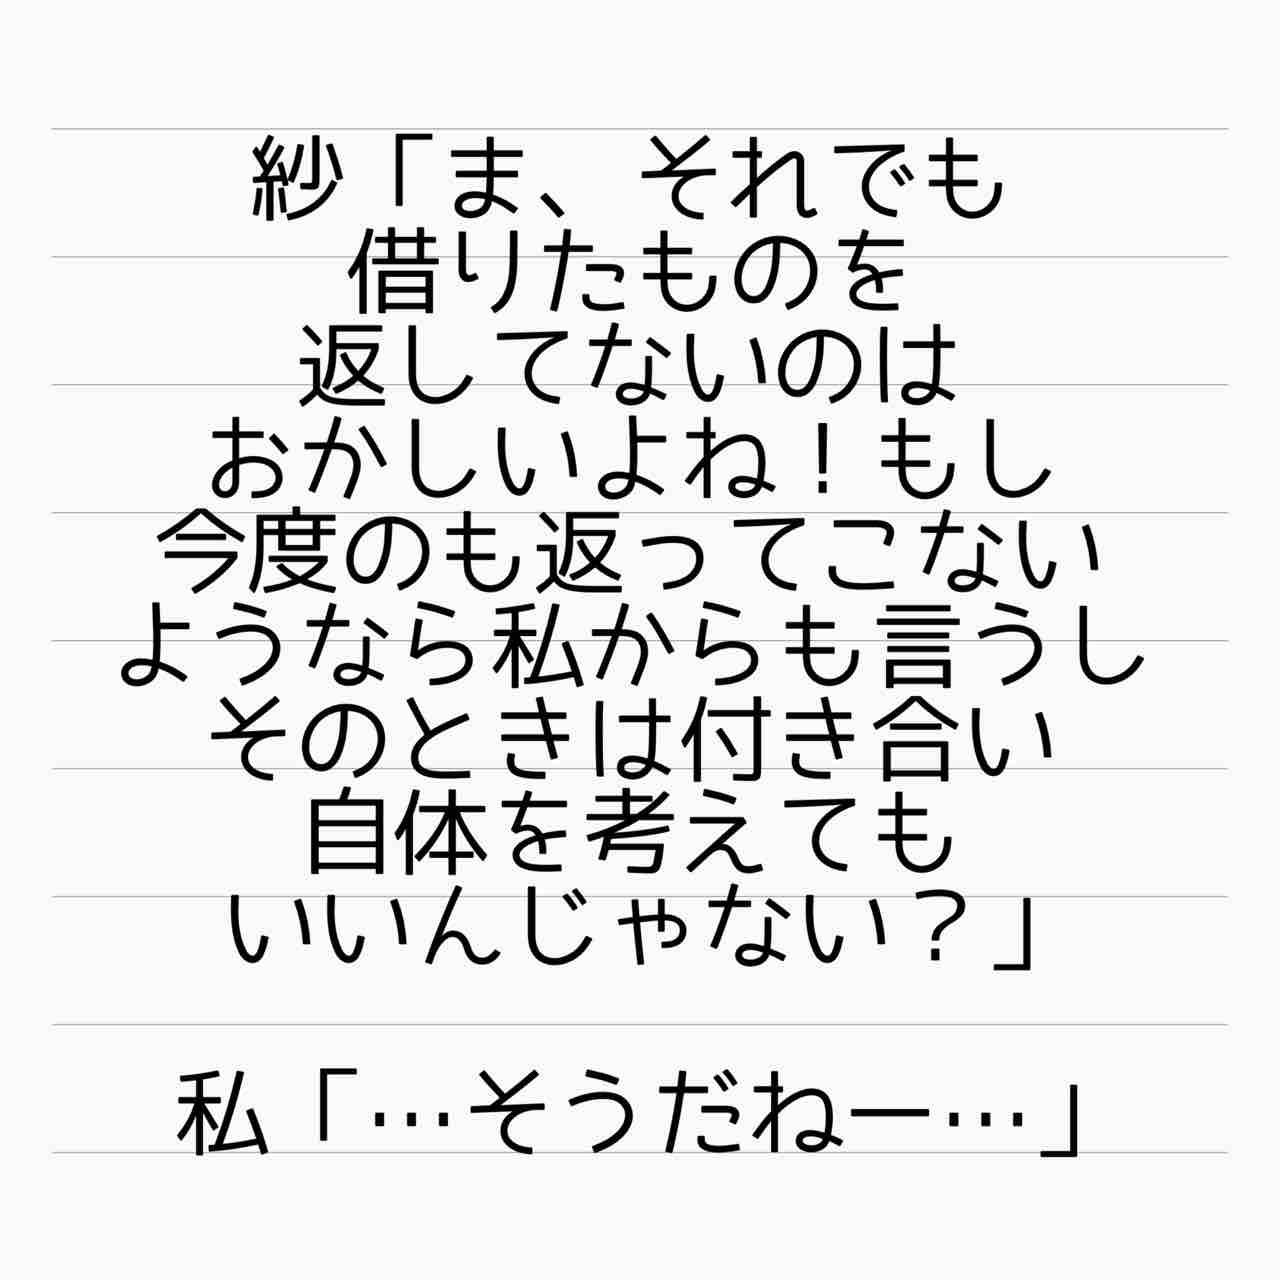 紗「ま、それでも
借りたものを
返してないのは
おかしいよね！もし
今度のも返ってこない
ようなら私からも言うし
そのときは付き合い
自体を考えても
いいんじゃない？」
私「…そうだねー…」